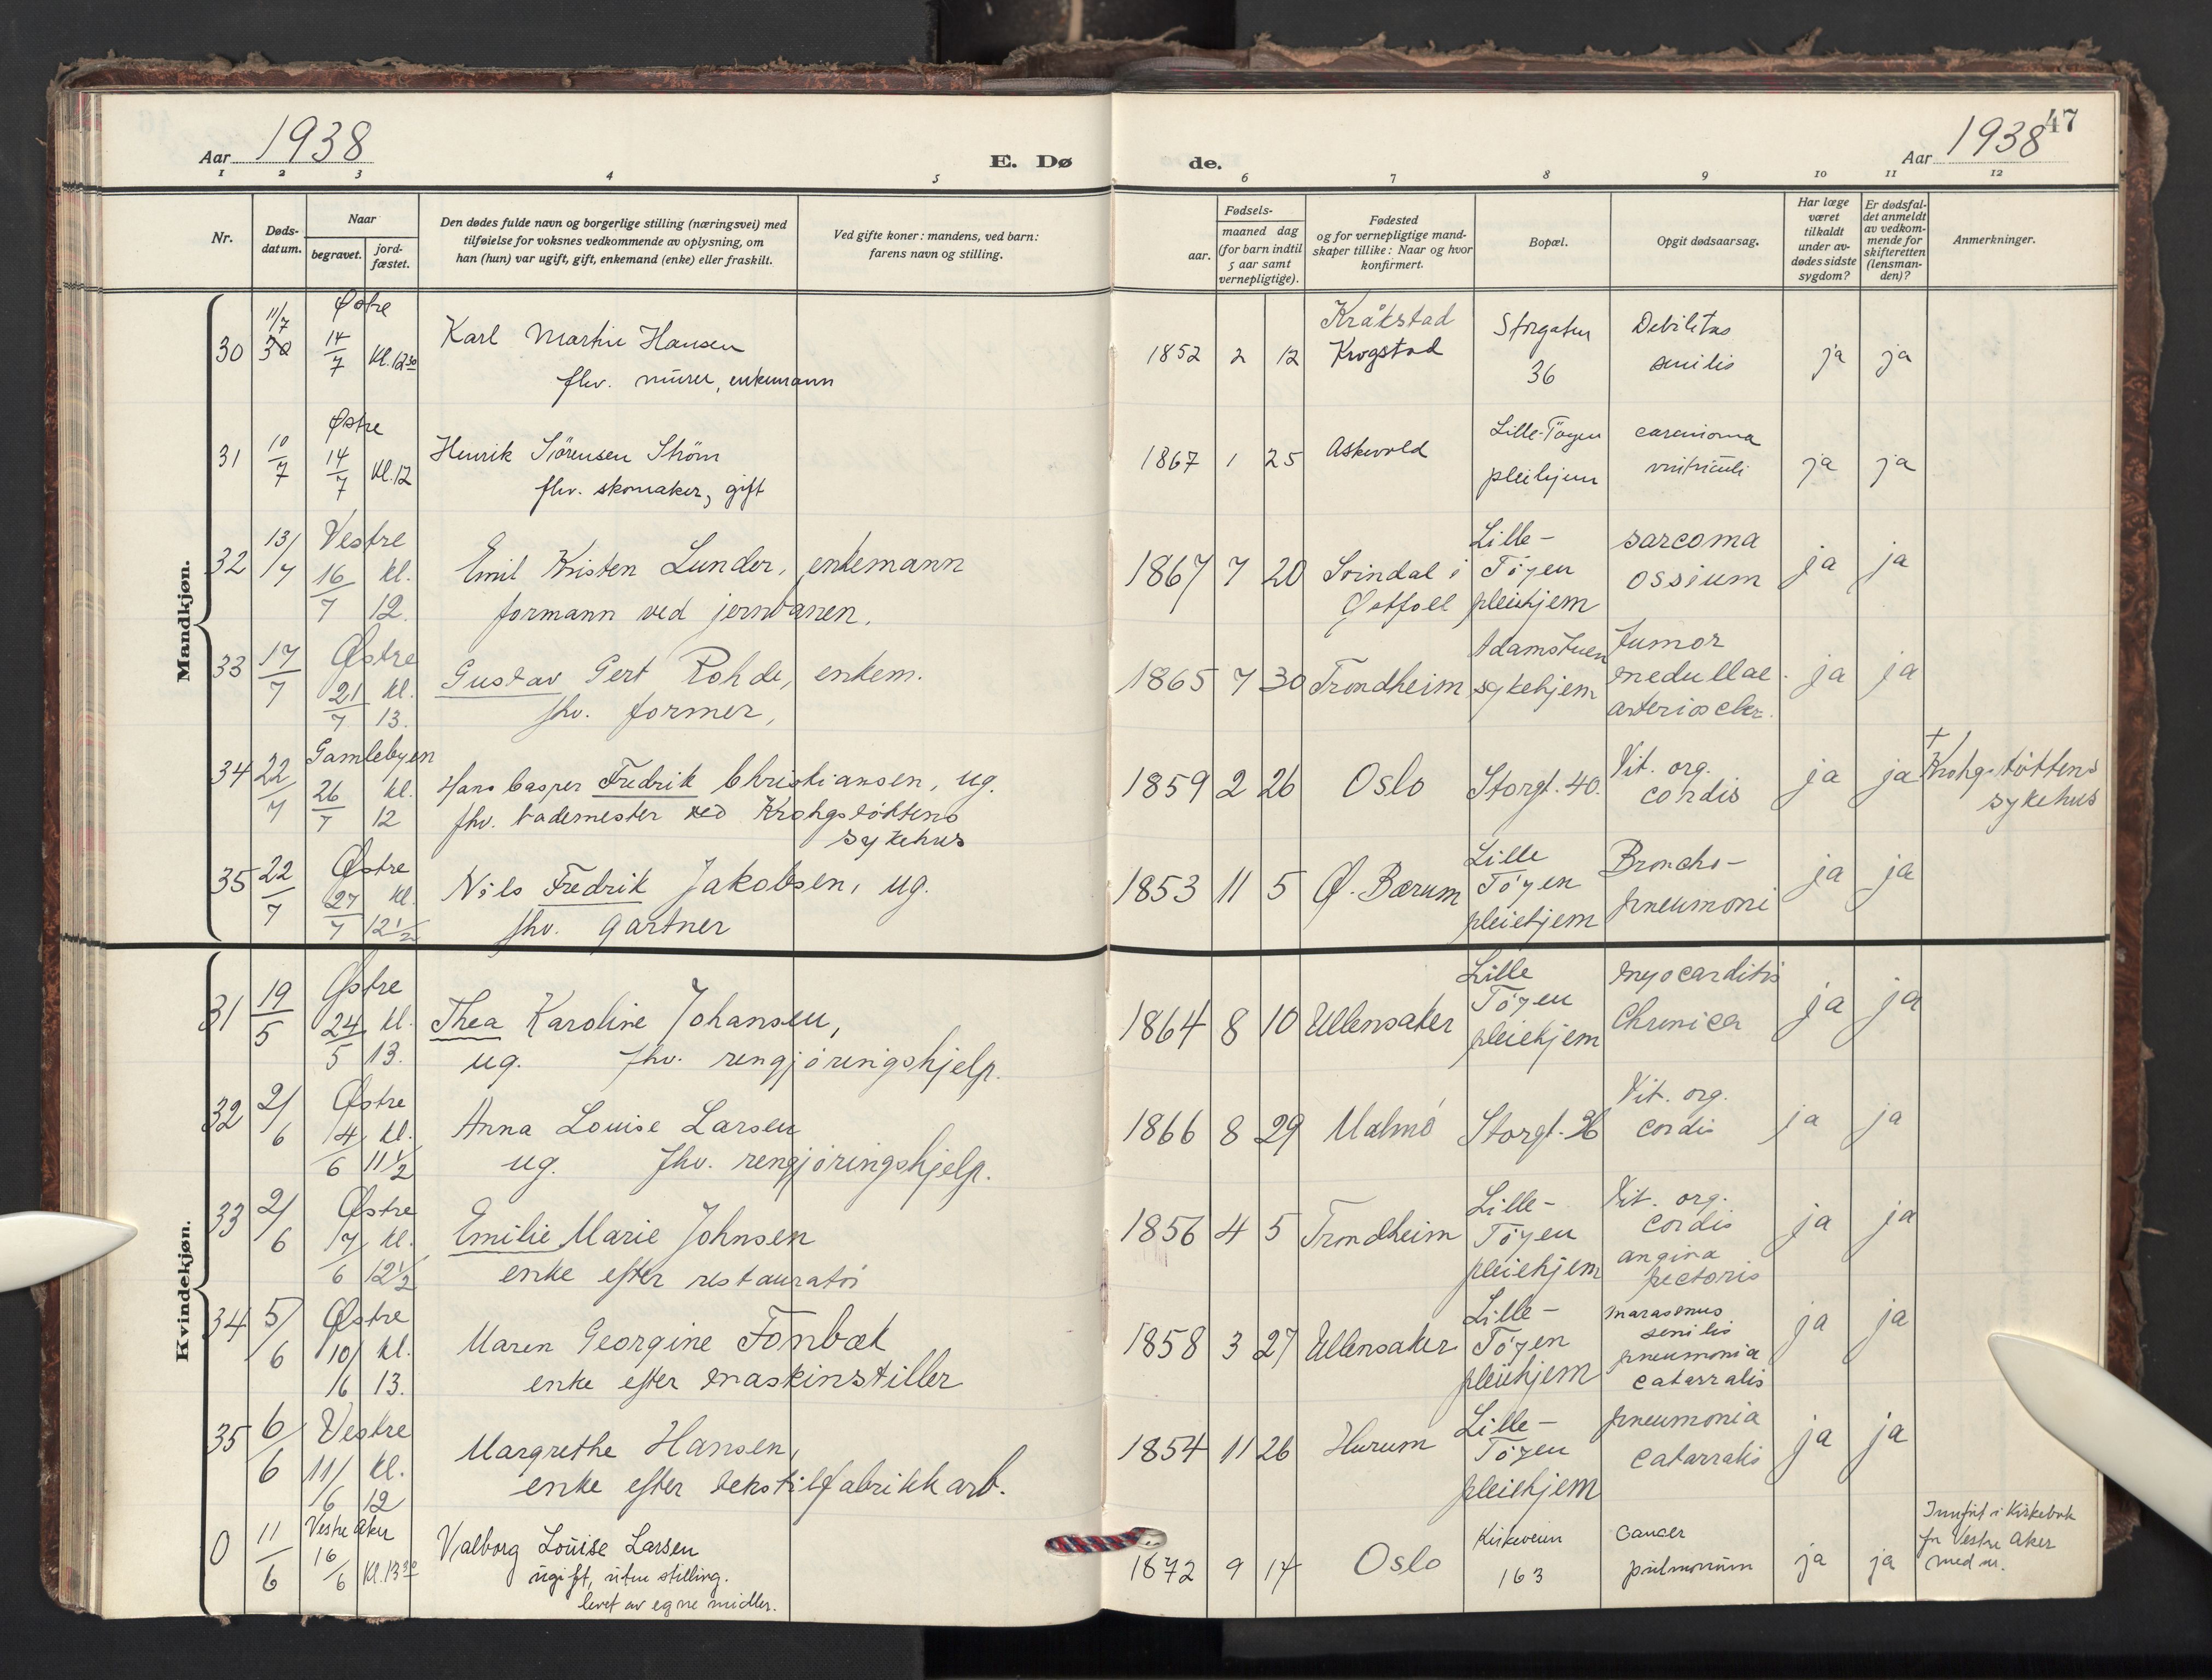 Aar 1938
E. Dø
de.
Aar 1938
47
1 2 3 4 5 6 7 8 9 10 11 12
Nr.
Døds-
datum.
Naar
begravet.
jord-
fæstet.
Den dødes fulde navn og borgerlige stilling (næringsvei) med
tilføielse for voksnes vedkommende av oplysning, om
han (hun) var ugift, gift, enkemand (enke) eller fraskilt.
Ved gifte koner: mandens, ved barn:
farens navn og stilling.
Fødsels-
aar.
maaned dag
(for barn indtil
5 aar samt
vernepligtige).
Fødested
og for vernepligtige mand-
skaper tillike: Naar og hvor
konfirmert.
Bopæl.
Opgit dødsaarsag.
Har læge
været
tilkaldt
under av-
dødes sidste
sygdom?
Er dødsfal-
det anmeldt
av vedkom-
mende for
skifteretten
(lensman-
den)?
Anmerkninger.
Mandkjøn.
30 11/7 Østre 14/7 Kl. 12 30
Karl Martin Hansen
fhv. murer, enkemann
1852 2 12
Kråkstad
Krogstad
Storgaten
36
Debilitas
senilis
ja ja
31 10/7 Østre 14/7 Kl. 12
Henrik Sörensen Ström
fhv. skomaker, gift
1867 1 25 Askvold
Lille-Töyen
pleiehjem
carcinoma
ventriculi
ja ja
32 13/7 Vestre 16/7 kl. 12.
Emil Kristen Lunder, enkemann
formann ved jernbanen.
1867 7 20
Svindal i
Østfoll
Lille-
Töyen
pleiehjem
sarcoma
ossium
ja ja
33 17/7 Østre 21/7 kl. 13.
Gustav Gert Rohde, enkem.
fhv. former,
1865 7 30 Trondheim
Adamstuen
sykehjem
Tumor
medullae.
arterioscler.
ja ja
34 22/7 Gamlebyen 26/7 kl. 12
Hans Casper Fredrik Christiansen, ug.
fhv. bademester ved Krohgstøttens
sykehus
1859 2 26 Oslo Storgt. 40.
Vit. org.
cordis
ja ja
† Krohgstøttens
sykehus
35 22/7 Østre 27/7 kl. 12 1/2
Nils Fredrik Jakobsen, ug.
fhv. gartner
1853 11 5 Ø. Bærum
Lille
Töyen
pleiehjem
Broncho-
pneumoni
ja ja
Kvindekjøn.
31 19/5 Østre 24/5 kl. 13.
Thea Karoline Johansen,
ug. fhv. rengjøringshjelp.
1864 8 10 Ullensaker
Lille
Töyen
pleiehjem
myocarditis
Chronica
ja ja
32 2/6 Østre 14/6 kl. 11 1/2
Anna Louise Larsen
ug. fhv. rengjøringshjelp.
1866 8 29 Malmö Storgt. 36
Vit. org.
cordis
ja ja
33 2/6 Østre 17/6 kl. 12 1/2
Emilie Marie Johnsen
enke efter restauratör
1856 4 5 Trondheim
Lille-
Töyen
pleiehjem
Vit. org.
cordis
angina
pectoris
ja ja
34 5/6 Østre 10/6 kl. 13.
Maren Georgine Fonbæk
enke efter maskinstiller
1858 3 27 Ullensaker
Lille-
Töyen
pleiehjem
marasmus
senilis
pneumonia
catarralis
ja ja
35 6/6 Vestre 11/6 kl. 12
Margrethe Hansen,
enke efter tekstilfabrikkarb.
1854 11 26 Hurum
Lille-
Töyen
pleiehjem
pneumonia
catarralis
ja ja
0 11/6 Vestre Aker 16/6 Kl. 13 30
Valborg Louise Larsen
ugift, uten stilling.
levet av egne midler.
1872 9 14 Oslo
Kirkeveien
163
Cancer
pulmonum
ja ja
Innført i Kirkebok
for Vestre Aker
med nr.